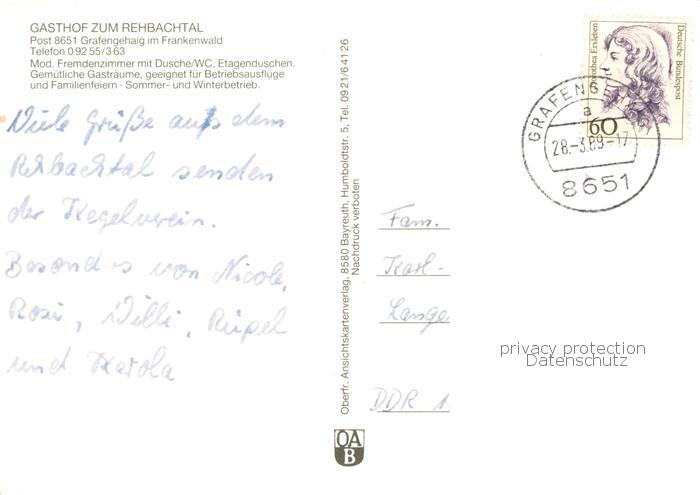 GASTHOF ZUM REHBACHTAL
Post 8651 Grafengehaig im Frankenwald
Telefon 0 92 55/3 63
Mod. Fremdenzimmer mit Dusche/WC, Etagenduschen.
Gemütliche Gasträume, geeignet für Betriebsausflüge
und Familienfeiern · Sommer- und Winterbetrieb.
Viele Grüße aus dem
Rehbachtal senden
der Kegelverein.
Besonders von Nicole,
Rosi, Willi, Rüpel
und Karola
Oberfr. Ansichtskartenverlag, 8580 Bayreuth, Humboldtstr. 5, Tel. 09 21/6 41 26
Nachdruck verboten
OA
B
Dorothea Erxleben
Deutsche Bundespost
60
GRAFENGEHAIG
a
28.-3.89-17
8651
Fam.
Karl-
Lange
DDR 1
privacy protection
Datenschutz